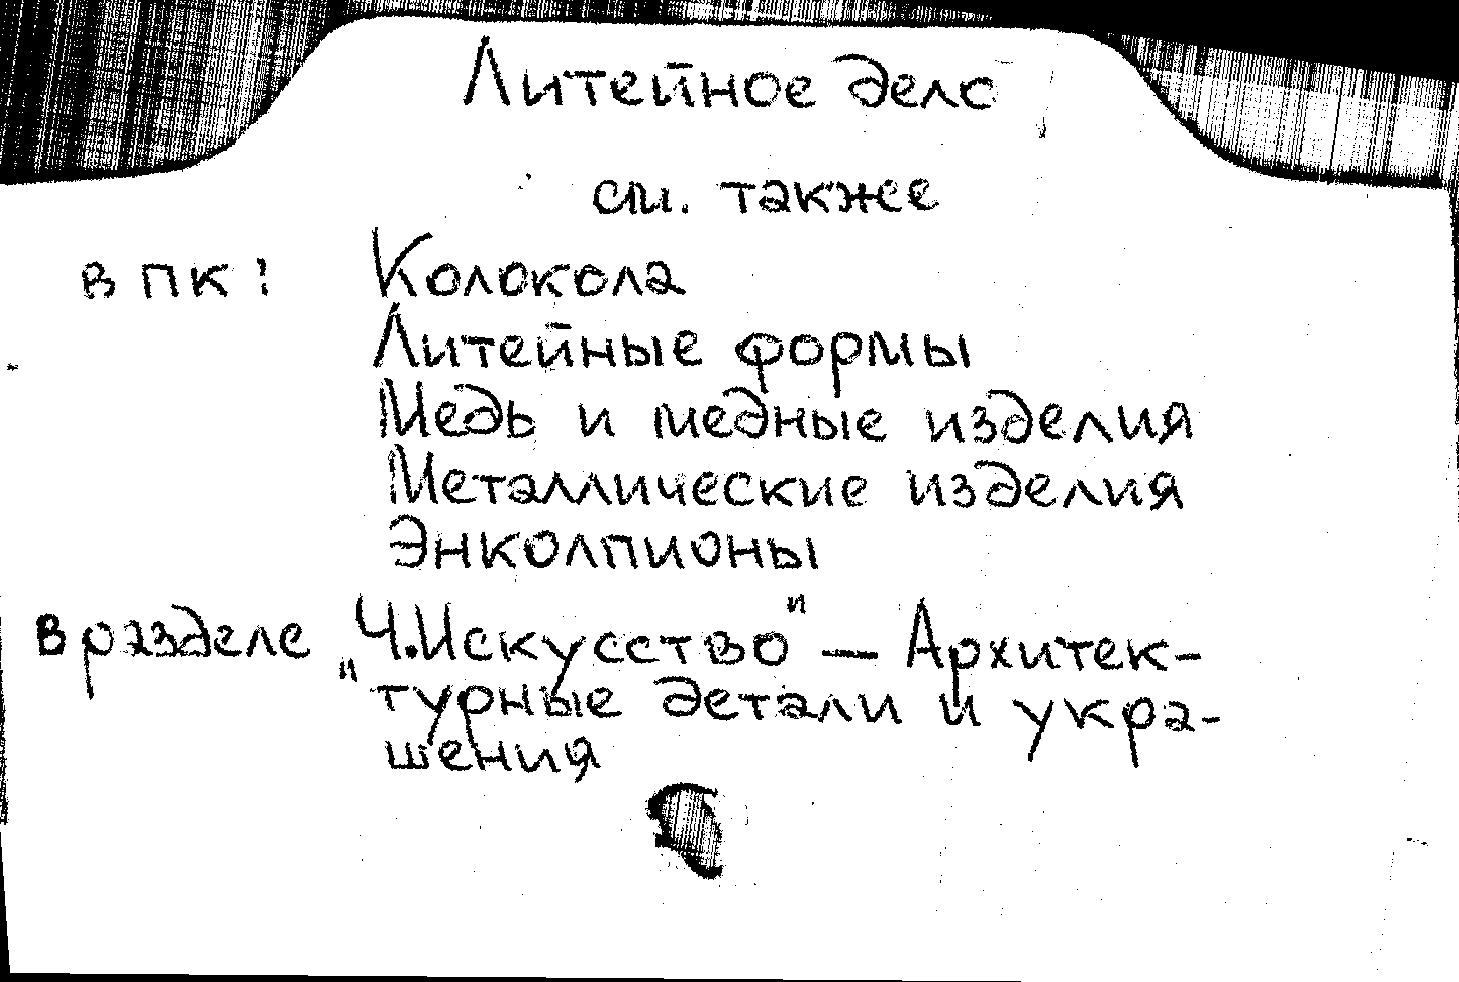 Литейное дело
см. также
в ПК: Колокола
Литейные формы
Медь и медные изделия
Металлические изделия
Энколпионы
В разделе "Ч.Искусство" — Архитек-
турные детали и укра-
шения